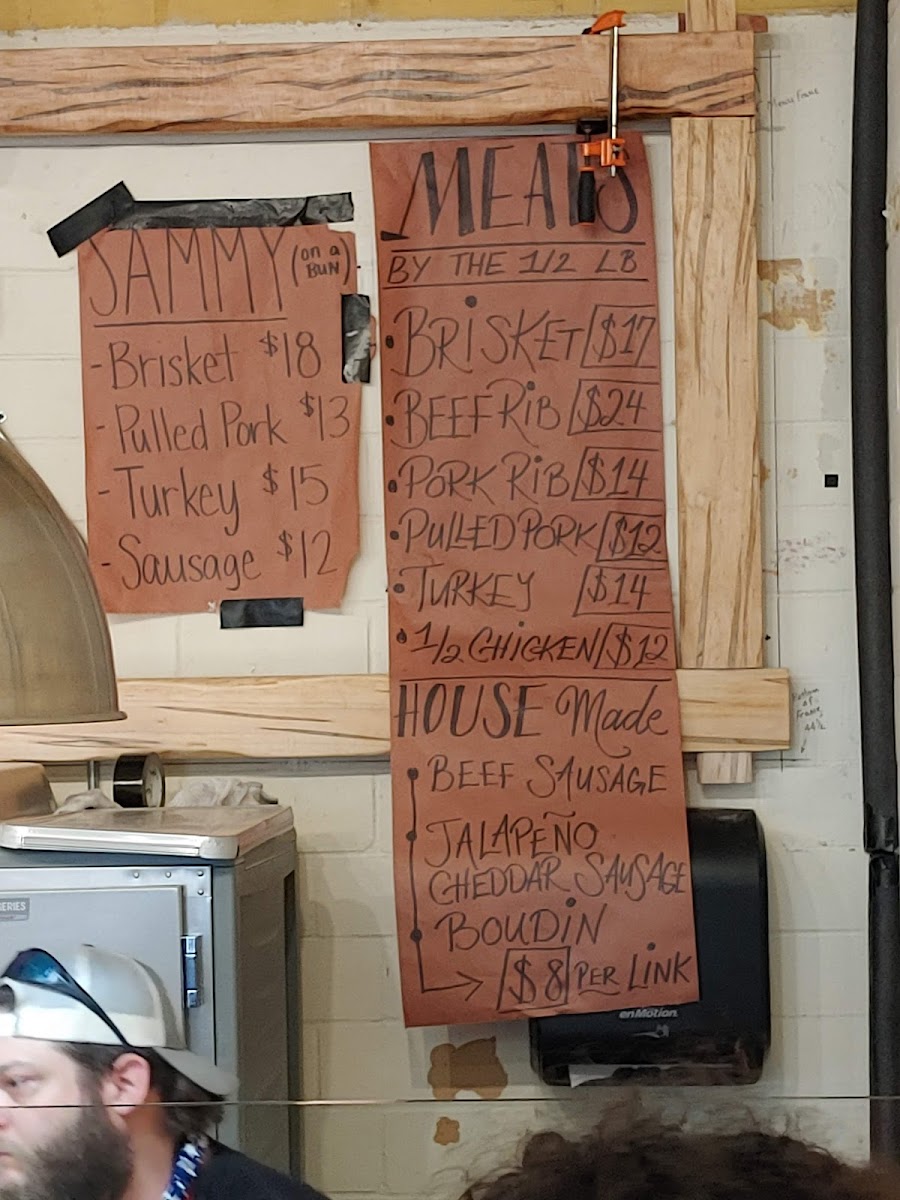 SAMMY (on a BUN)
-Brisket $18
-Pulled Pork $13
-Turkey $15
-Sausage $12
MEATS
BY THE 1/2 LB
• BRISKET $17
• BEEF RIB $24
• PORK RIB $14
• PULLED PORK $12
• TURKEY $14
• 1/2 CHICKEN $12
HOUSE Made
BEEF SAUSAGE
JALAPEÑO
CHEDDAR SAUSAGE
BOUDIN
$8 PER LINK
enMotion